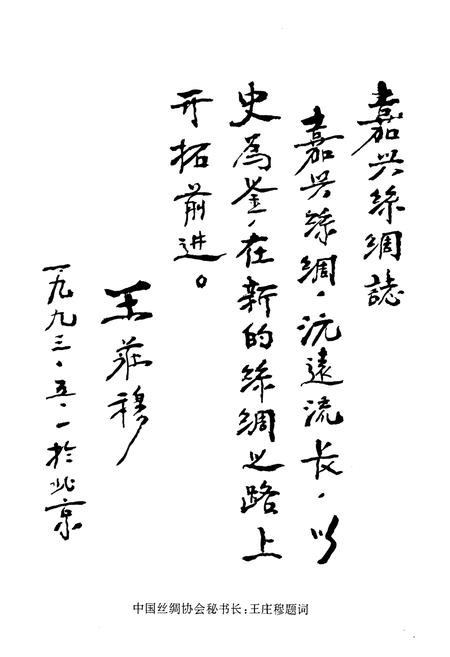 嘉兴絲綢誌
嘉兴絲綢，沅遠流长，以
史為鉴，在新的絲綢之路上
开拓前进。
王莊穆
一九九三.五.一於北京
中国丝绸协会秘书长：王庄穆题词